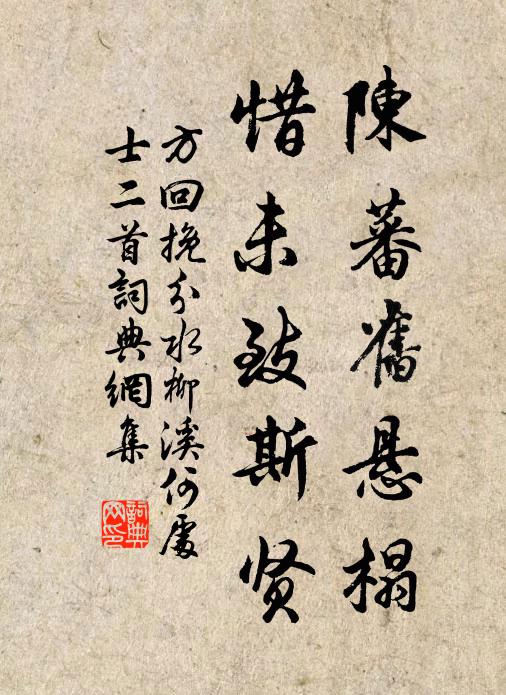 陳蕃舊懸榻
惜未致斯贤
方回挽分水柳溪何處
士二首詞典網集
詞典网印